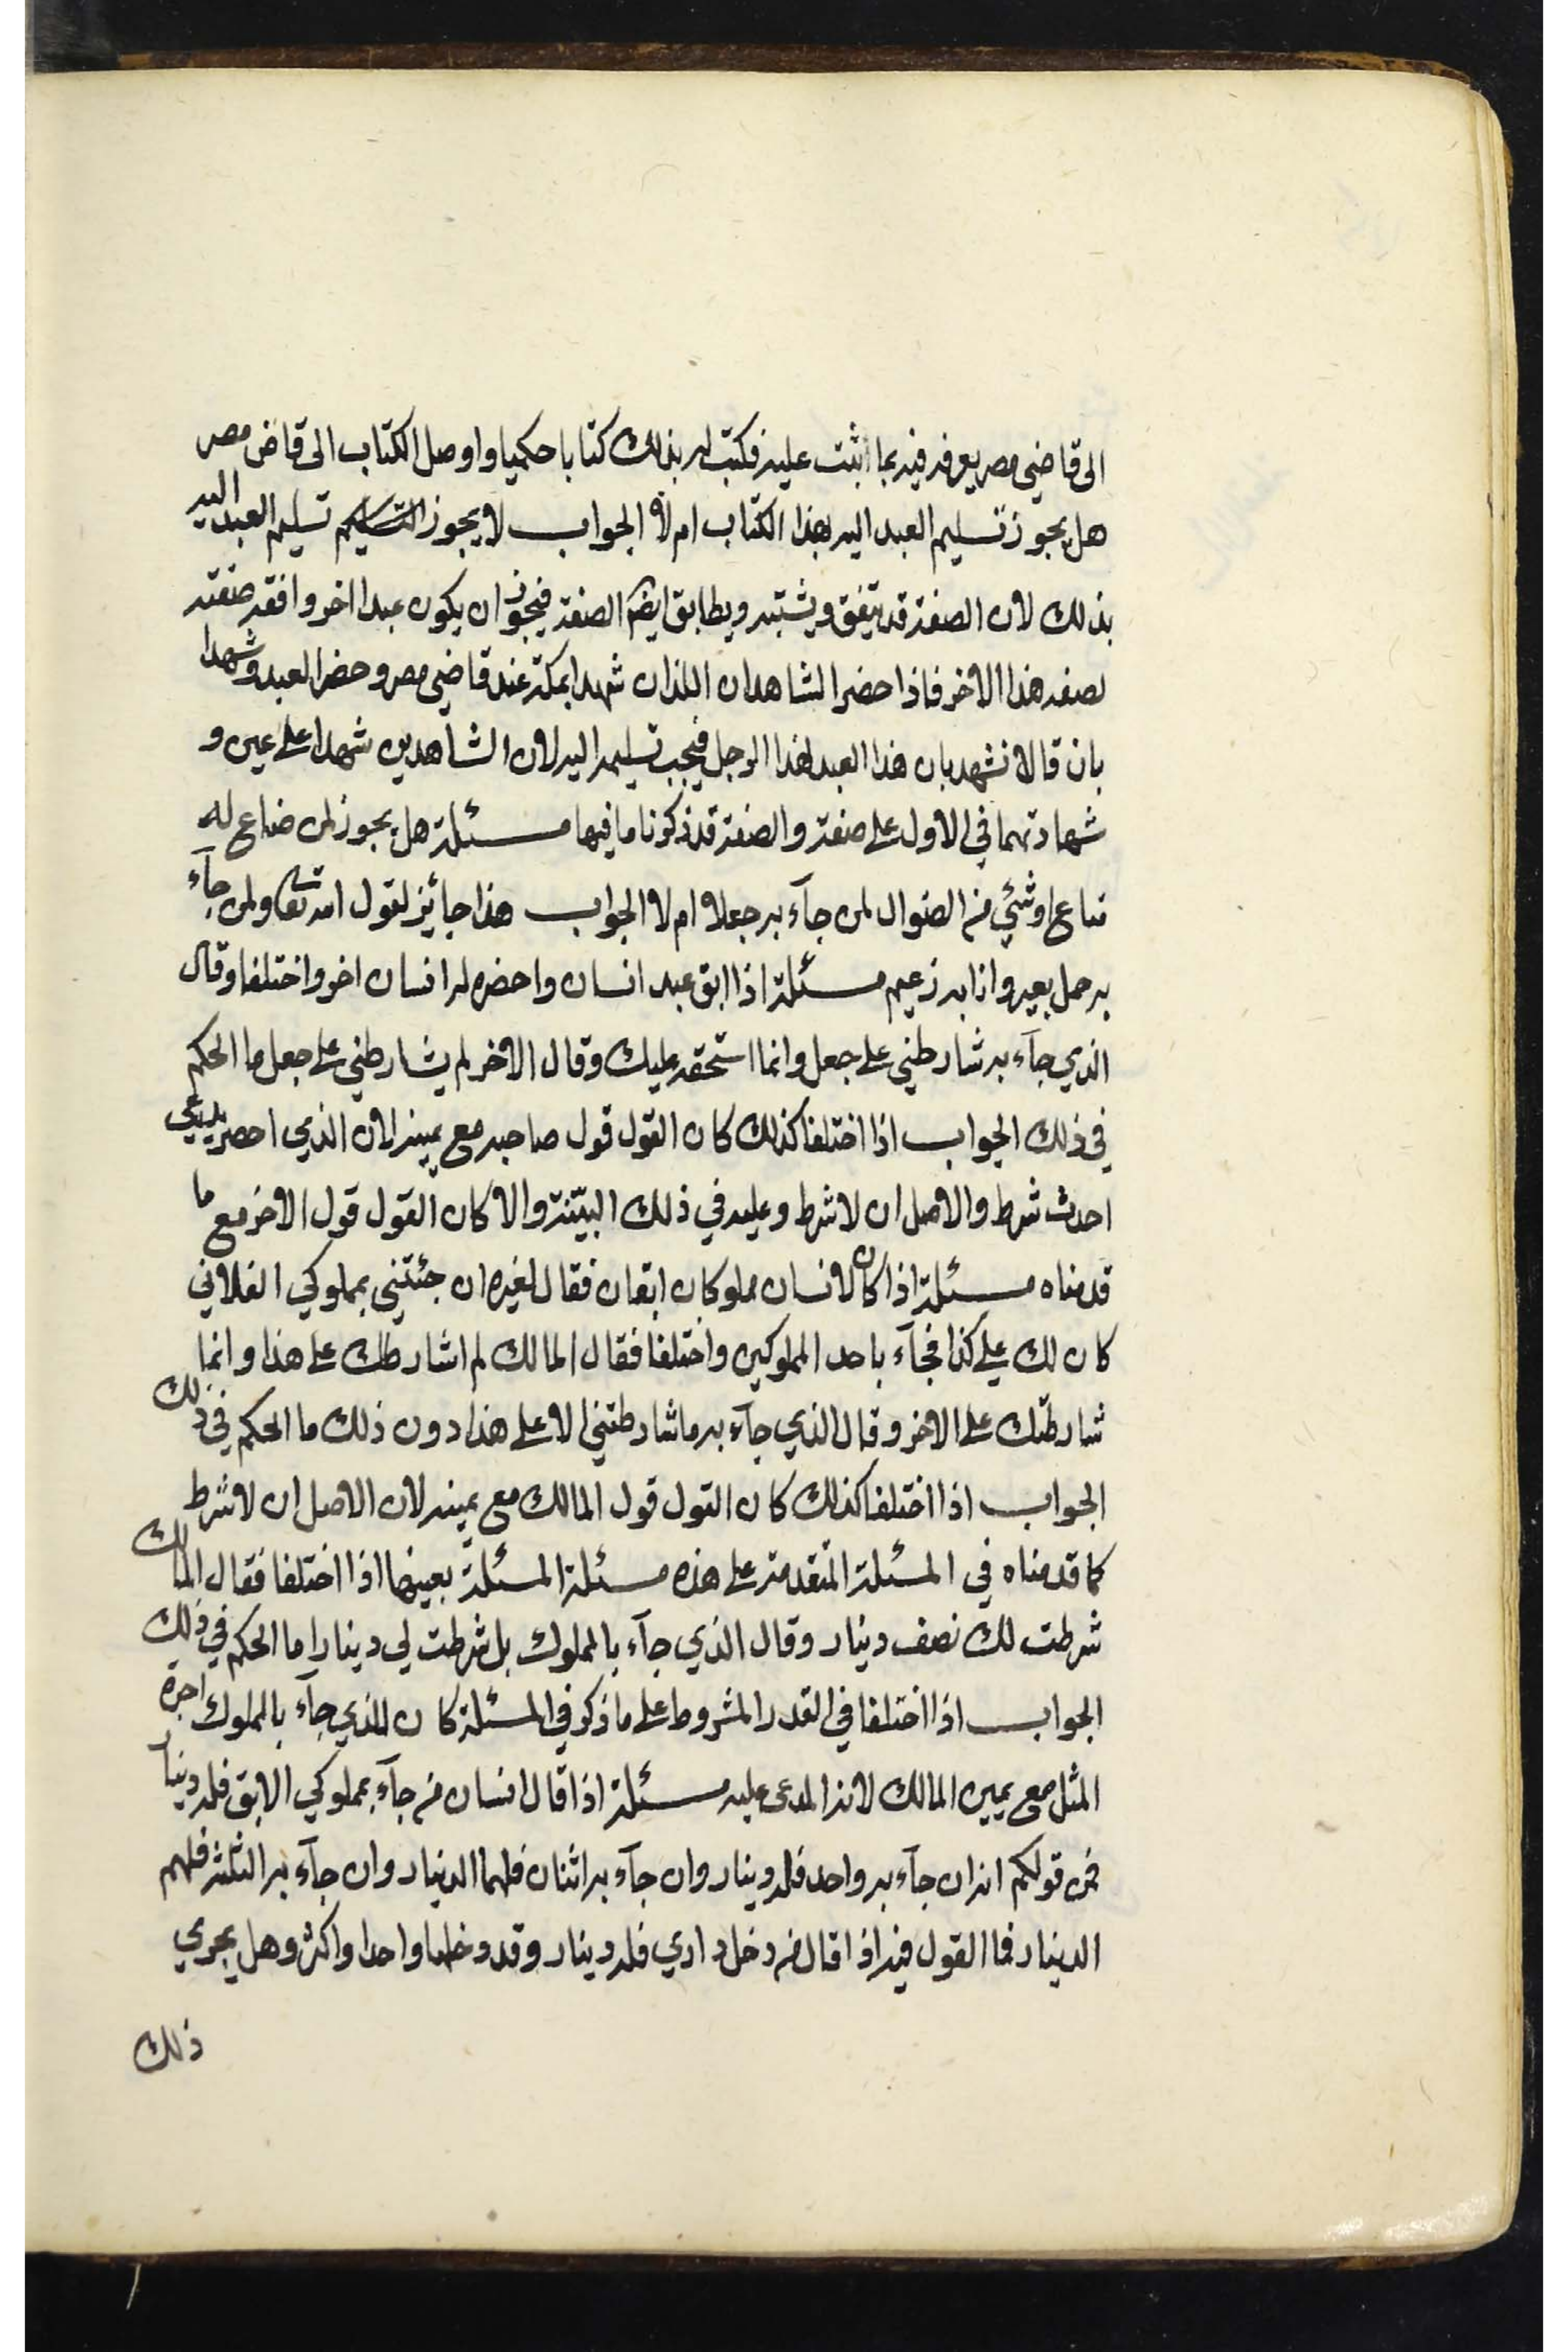 الى قاضي مصر يعرفه فيه بما اثبت عليه فكتب له بذلك كتابا حكميا واوصل الكتاب الى قاض مصر
هل يجوز تسليم العبد اليه بهذا الكتاب ام لا الجواب لا يجوز التسليم تسليم العبد اليه
بذلك لان الصفة قد يتفق ويشتبه ويطابق ايضم الصفة فيجوز ان يكون عبدا اخر وافقه صفته
لصفه هذا الاخر فاذا حضر الشاهدان اللذان شهدا بمكة عند قاضي مصر وحضر العبد وشهدا
بان قالا نشهد بان هذا العبد لهذا الرجل فيجب تسليمه اليه لان الشاهدين شهدا على عين و
شهادتهما في الاول على صفة والصفة قد ذكرنا ما فيها مسئلة هل يجوز لمن ضاع له
متاع او شئي من الضوال لمن جآء به جعلا ام لا الجواب هذا جائيز لقول الله تعا ولمن جآء
به حمل بعير وانا به زعيم مسئلة اذا ابق عبد انسان واحضره له انسان اخر واختلفا وقال
الذي جآء به شارطني على جعل وانما استحقه عليك وقال الاخر لم يشارطني على جعل ما الحكم
في ذلك الجواب اذا اختلفا كذلك كان القول قول صاحبه مع يمينه لان الذي احضر يدعي
احدث شرط والاصل ان لا شرط وعليه في ذلك البيّنة والا كان القول قول الاخر مع ما
قدمناه مسئلة اذا كان لانسان مملوكان ابقان فقال لغيره ان جئتني بمملوكي الفلاني
كان لك علي كذا فجآء باحد المملوكين واختلفا فقال المالك لم اشارطك على هذا وانما
شارطتك على الاخر وقال الذي جآء به ما شارطتني الا على هذا دون ذلك ما الحكم في ذلك
الجواب اذا اختلفا كذلك كان القول قول المالك مع يمينه لان الاصل ان لا شرط
كما قدمناه في المسئلة المتقدمة على هذه مسئلة المسئلة بعينها اذا اختلفا فقال المالك
شرطت لك نصف دينار وقال الذي جآء بالمملوك بل شرطت لي دينارا ما الحكم في ذلك
الجواب اذا اختلفا في القدر المشروط على ما ذكر في المسئلة كان للذي جآء بالمملوك اجرة
المثل مع يمين المالك لانه المدعى عليه مسئلة اذا قال انسان من جآء بمملوكي الابق فله دينار
فمن قولكم انه ان جآء به واحد فله دينار وان جآء به اثنان فلهما الدينار وان جآء به الثلثة فلهم
الدينار فما القول فيه اذا قال من دخل داري فله دينار وقد دخلها واحدا واكثر وهل يجري
ذلك